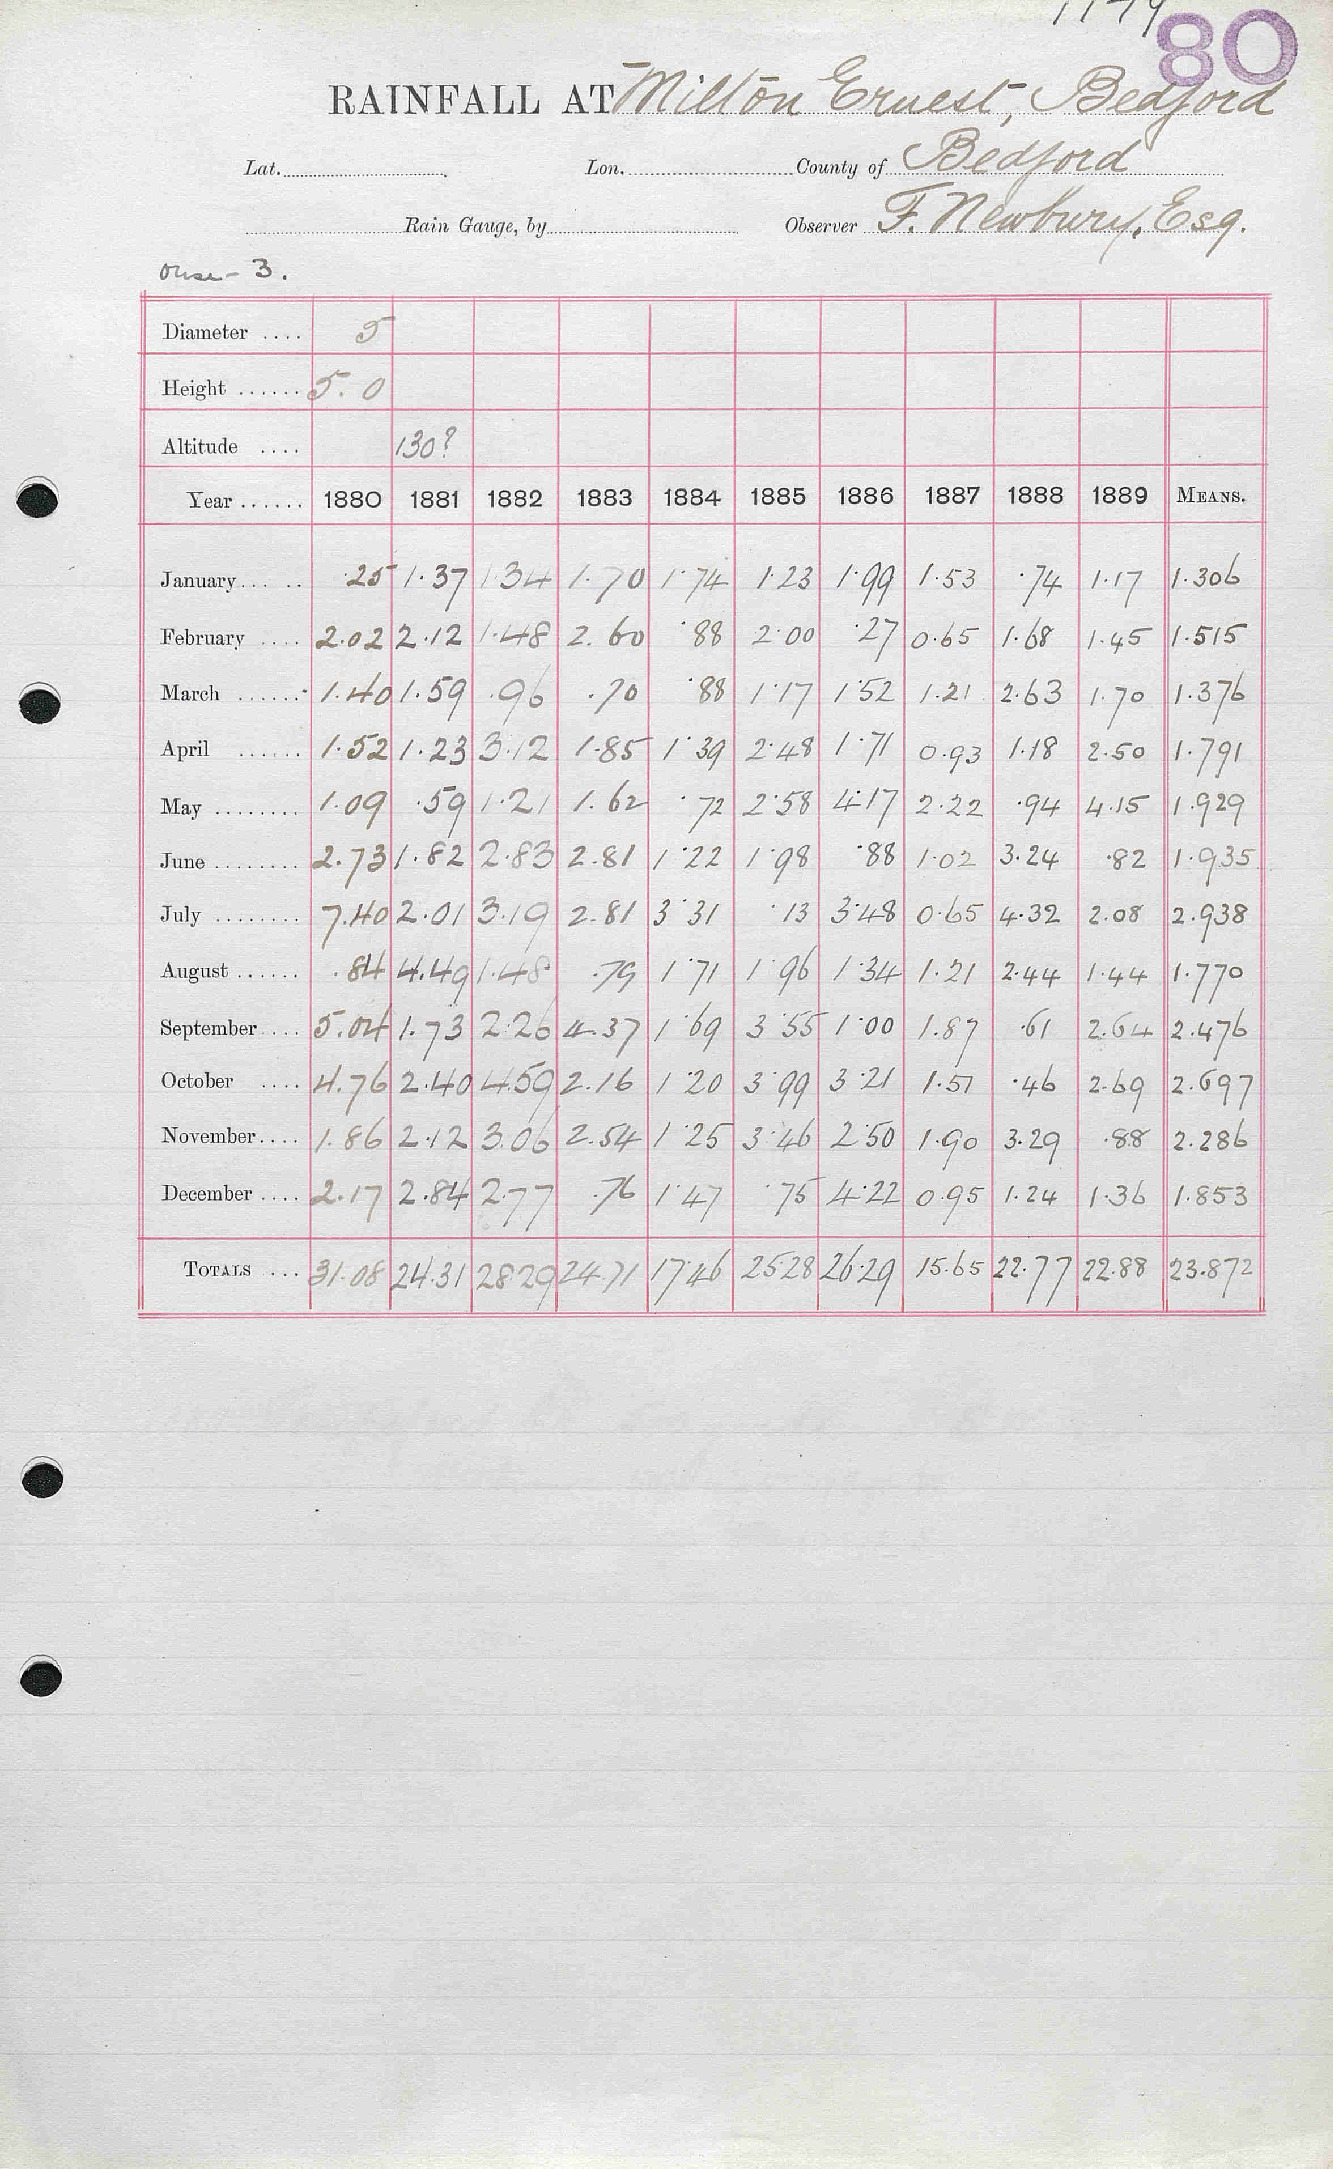 80
RAINFALL AT Milton Ernest, Bedford
Lat. Lon. County of Bedford
Rain Gauge, by Observer F. Newbury, Esq.
Ouse - 3.
Diameter .... 5
Height ...... 5. 0
Altitude .... 130?
Year ...... 1880 1881 1882 1883 1884 1885 1886 1887 1888 1889 MEANS.
January ... .. .25 1.37 1.34 1.70 1.74 1.23 1.99 1.53 .74 1.17 1.306
February .... 2.02 2.12 1.48 2.60 .88 2.00 .27 0.65 1.68 1.45 1.515
March ...... 1.40 1.59 .96 .70 .88 1.17 1.52 1.21 2.63 1.70 1.376
April ...... 1.52 1.23 3.12 1.85 1.39 2.48 1.71 0.93 1.18 2.50 1.791
May ........ 1.09 .59 1.21 1.62 .72 2.58 4.17 2.22 .94 4.15 1.929
June ........ 2.73 1.82 2.83 2.81 1.22 1.98 .88 1.02 3.24 .82 1.935
July ........ 7.40 2.01 3.19 2.81 3.31 .13 3.48 0.65 4.32 2.08 2.938
August ...... .84 4.49 1.48 .79 1.71 1.96 1.34 1.21 2.44 1.44 1.770
September .... 5.04 1.73 2.26 4.37 1.69 3.55 1.00 1.87 .61 2.64 2.476
October .... 4.76 2.40 4.59 2.16 1.20 3.99 3.21 1.51 .46 2.69 2.697
November .... 1.86 2.12 3.06 2.54 1.25 3.46 2.50 1.90 3.29 .88 2.286
December .... 2.17 2.84 2.77 .76 1.47 .75 4.22 0.95 1.24 1.36 1.853
TOTALS ... 31.08 24.31 28.29 24.71 17.46 25.28 26.29 15.65 22.77 22.88 23.872